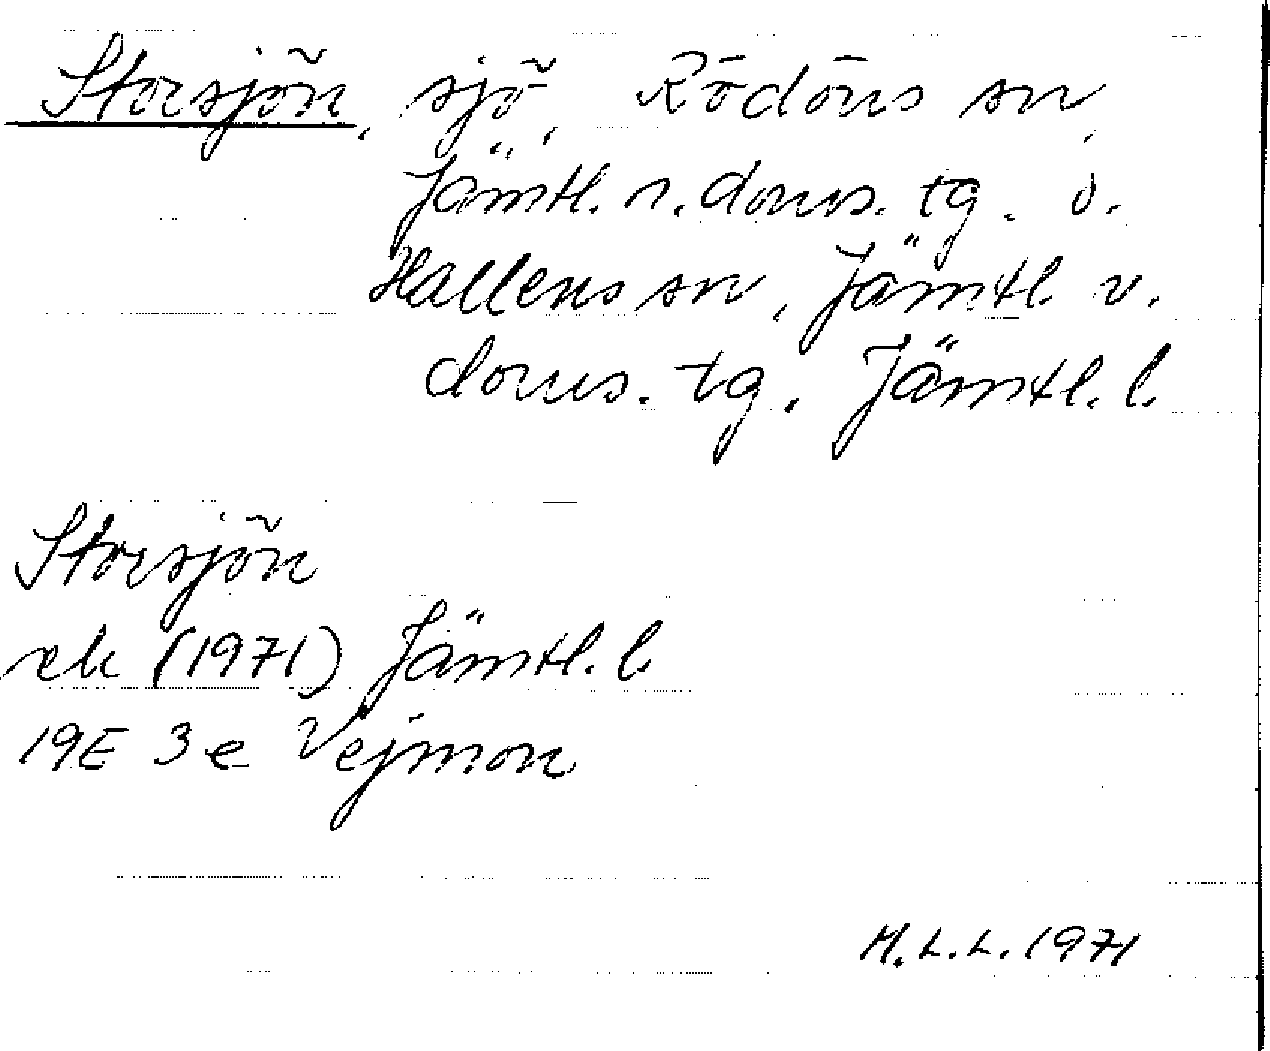 Storsjön, sjö, Rödöns sn,
Jämtl. n. doms. tg. o.
Hallens sn, Jämtl. v.
doms. tg. Jämtl. l.
Storsjön
ek (1971) Jämtl. l.
19E 3e Vejmon
M.L.L. 1971